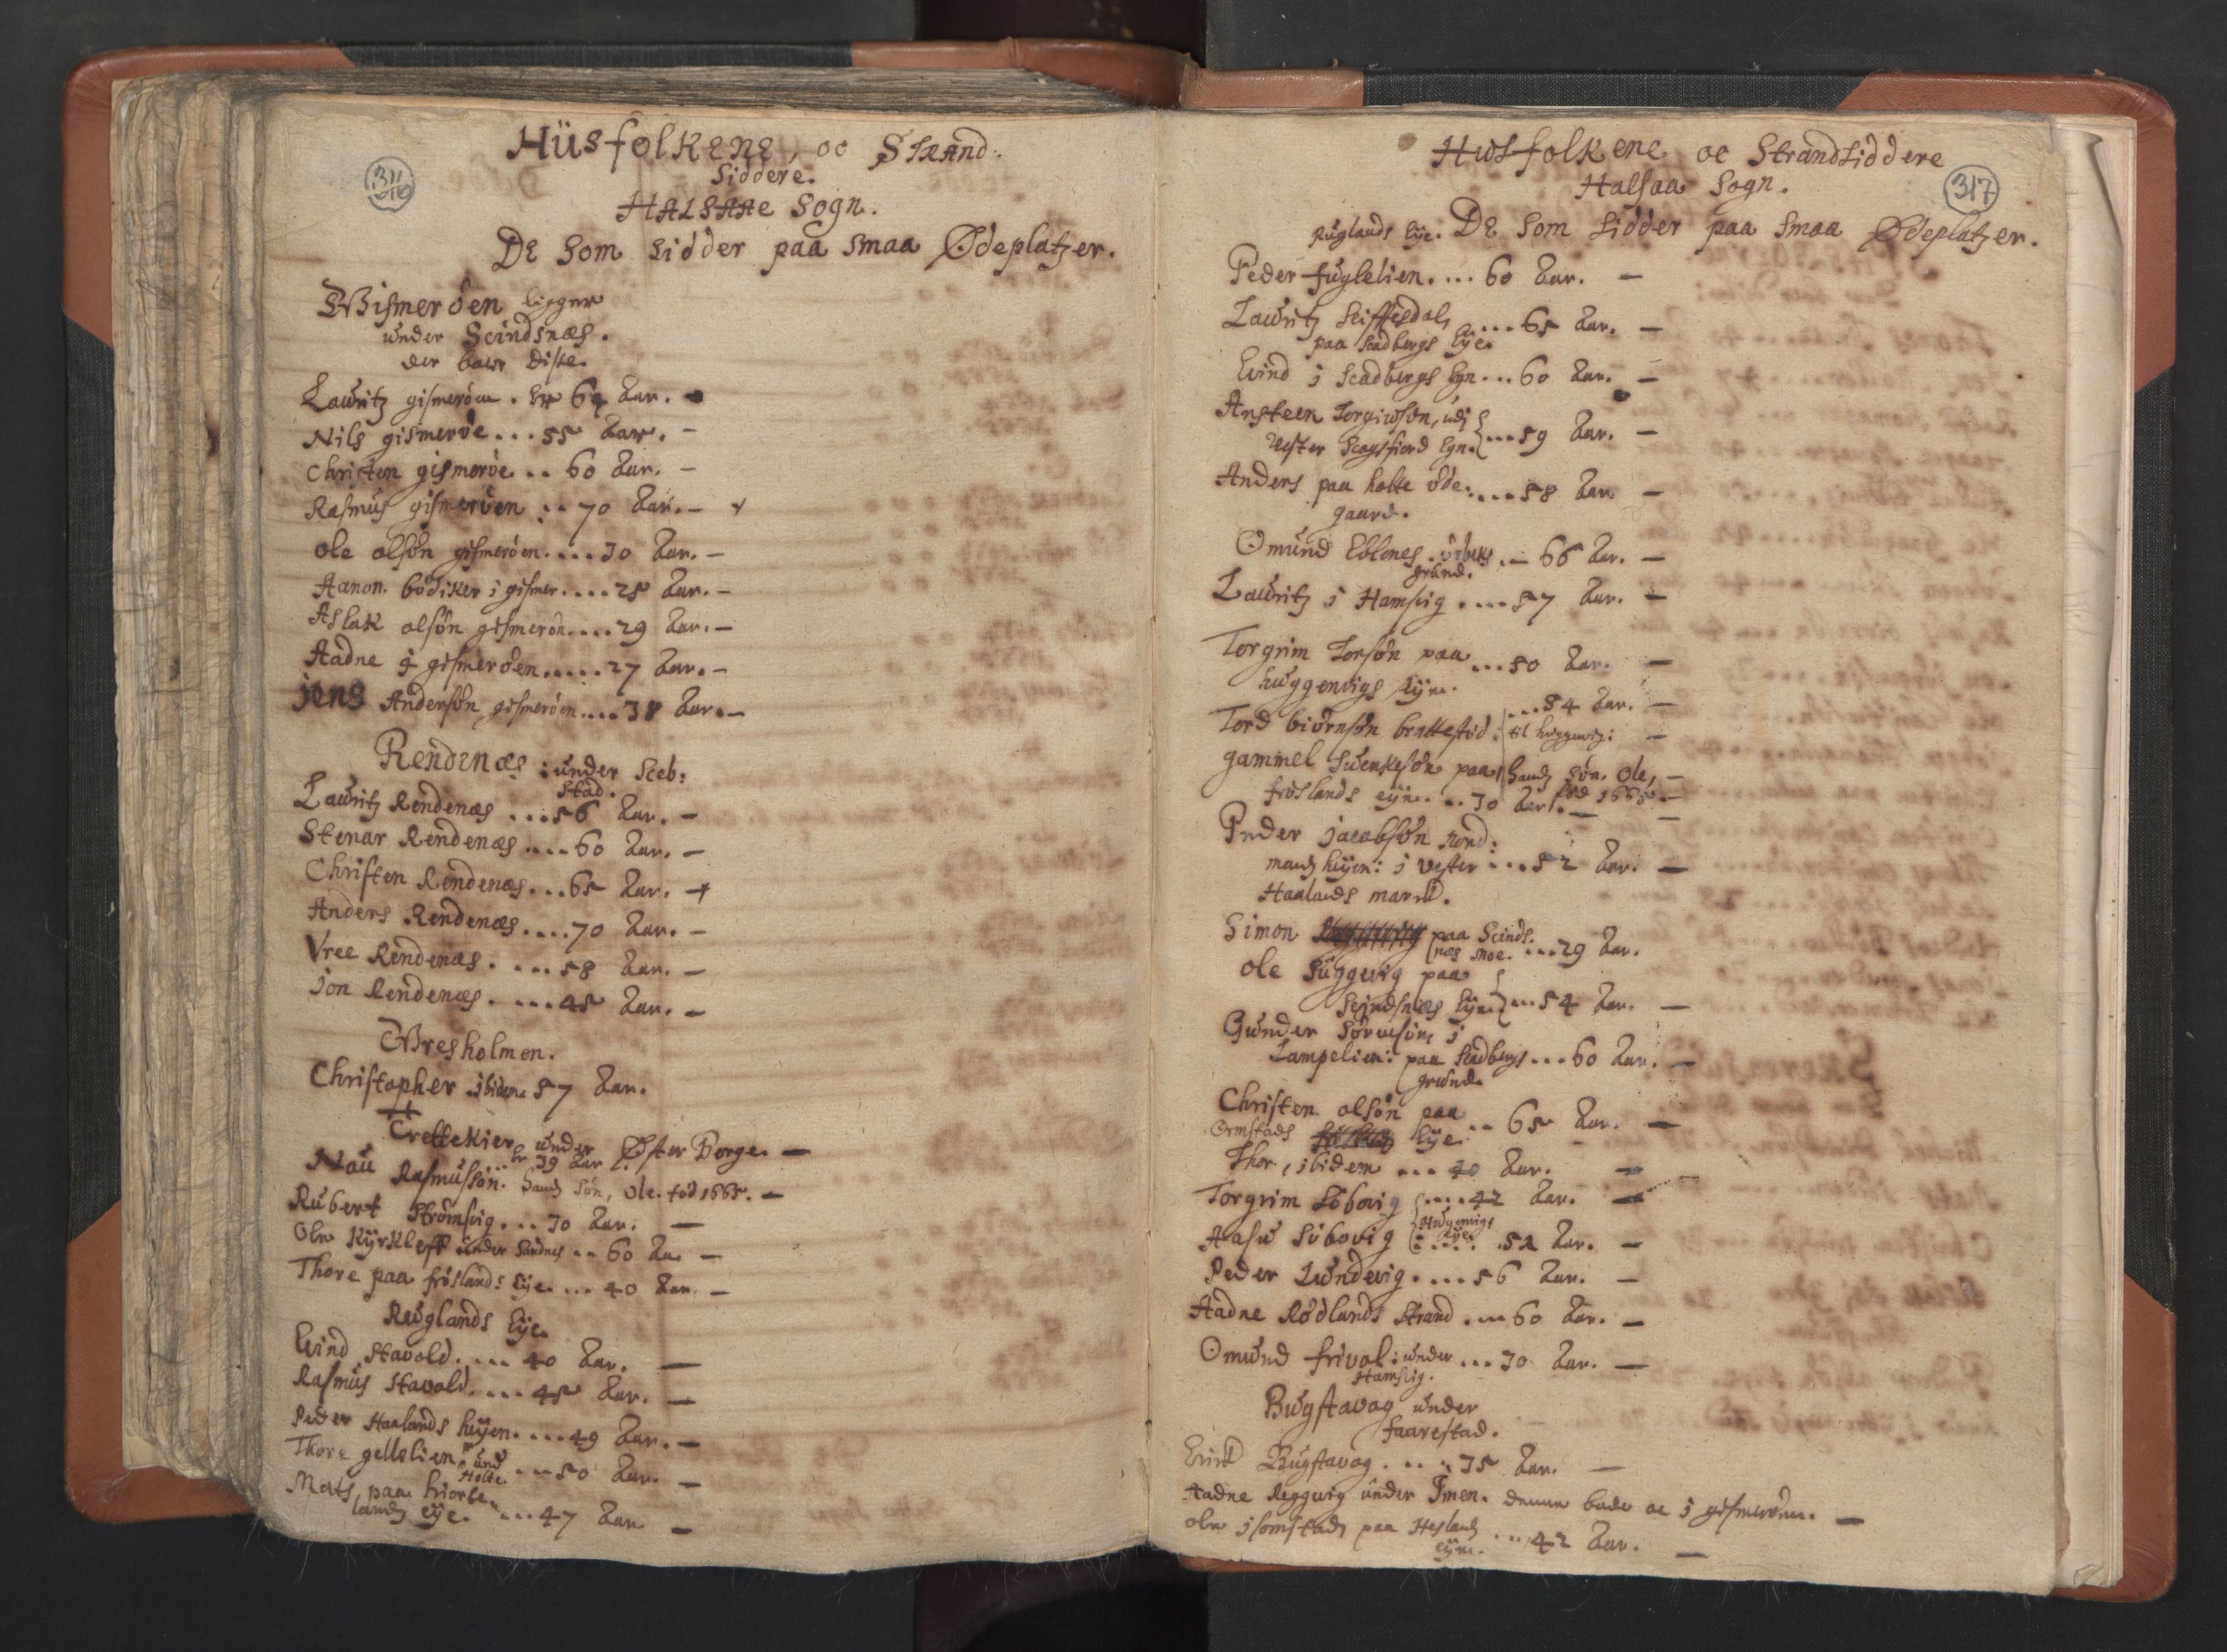 316
Hüsfolkene, oc Strand:
siddere.
Halsaae Sogn.
De som sidder paa smaa Ødeplatzer.
Gismerøen ligger
under Scindsnæs.
der boer diste.
Lauritz gismerøen. er 64 Aar. –
Nils gismerøe ... 55 Aar. –
Christen gismerøe .. 60 Aar. –
Rasmus gismerøen .. 70 Aar. –
Ole olsøn gismerøen .... 30 Aar. –
Aanon bødiker i gismer .... 28 Aar. –
Aslak olsøn gismerøn .... 29 Aar. –
Aadne i gismerøen ..... 27 Aar. –
jens Andersøn gismerøen .... 38 Aar. –
Rendenæs : under Sceb:
stad.
Lauritz Rendenæs ... 56 Aar. –
Stenar Rendenæs .... 60 Aar. –
Christen Rendenæs ... 65 Aar. +
Anders Rendenæs .... 70 Aar. –
Vree Rendenæs .... 58 Aar. –
jon Rendenæs .... 45 Aar. –
Uresholmen.
Christopher ibidem 57 Aar.
Trettekier under Øster Berge. –
Nau Rasmusson. er 39 Aar
hands søn, Ole. fød 1665. –
Rubert Strømsvig ... 30 Aar. –
Ole Kÿrkleff under Sandnes .. 60 Aa –
Thore paa frøslands Eÿe ... 40 Aar. –
Reuglands Eÿe.
Eind Stavold .... 40 Aar. –
Rasmus Stavold .... 45 Aar. –
Peder Haalands heÿen .... 49 Aar. –
Thore gellslien: und
Holte. ... 50 Aar. –
Mats paa hiorte
lands eÿe. ... 47 Aar –
317
Husfolkene oc Strandsiddere
Halsaa Sogn.
Ruglands Eÿe. De som sidder paa smaa Ødeplatzer.
Peder fuglelien. ... 60 Aar. –
Lauritz Stiffesdal ... 65 Aar. –
paa Scadbergs Eÿe.
Eind i Scadbergs Egn ... 60 Aar. –
Ansteen Torgiusøn, udj
Vester Scogsfiord Egn. ... 59 Aar. –
Anders paa holte øde: ... 58 Aar –
gaard.
Omund Ebbenes ... 66 Aar. –
grund.
Lauritz i Hamsvig .... 57 Aar. –
Torgrim Torsøn paa ... 50 Aar. –
huggenvigs Eÿe.
Tord biørnsøn brattestød: ... 54 Aar. –
til huggevig: –
gammel Suenkesøn paa hands søn. Ole, –
frøslands eÿe ... 30 Aar. fød 1665. –
Peder jacobsøn Nord:
mands heÿen: i vester ... 52 Aar. –
Haalands marck.
Simon paa Scinds.
næs Moe. ... 29 Aar.
Ole Suggevig paa
Scindsnæs Eÿe ... 54 Aar. –
Gunder Sørensøn, i
Lampelien: paa Scadbergs ... 60 Aar. –
grund.
Christen olsøn paa
Ormstads Eÿe .. 65 Aar. –
Thor, ibidem ... 40 Aar. –
Torgrim Sobovig .... 42 Aar. –
Huggevigs
Eÿe.
Aasu Sobovig ..... 52 Aar. –
Peder Lundevig .... 56 Aar. –
Aadne Rødlands Strand ... 60 Aar. –
Omund frivol: under ... 30 Aar. –
Hamsvig.
Bugstavog under
faarestad.
Erick Bugstavog .... 35 Aar. –
Aadne Reggevig under Imen. denne bode oc i gismerøen. –
Ole i somstad paa Heslands ... 42 Aar. –
eÿe.